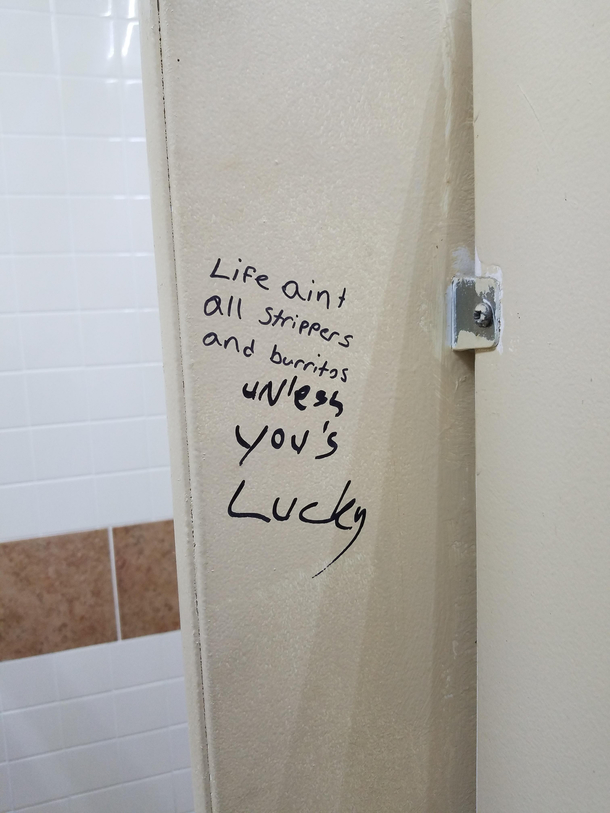 Life aint
all strippers
and burritos
unless
you's
Lucky